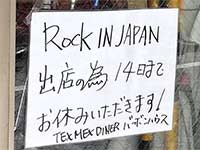 ROCK IN JAPAN
出店の為 14日まで
お休みいただきます!
TEX MEX DINER バーボンハウス